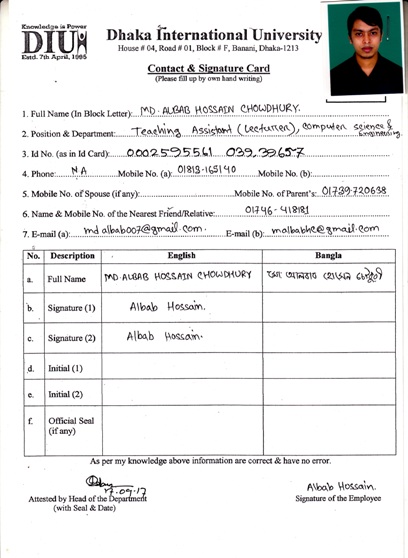 Knowledge is Power
DIU
Estd. 7th April, 1995
Dhaka International University
House # 04, Road # 01, Block # F, Banani, Dhaka-1213
Contact & Signature Card
(Please fill up by own hand writing)
1. Full Name (In Block Letter): MD. ALBAB HOSSAIN CHOWDHURY.
2. Position & Department: Teaching Assistant (Lecturer), Computer science & Engineering.
3. Id No. (as in Id Card): 0002595561 039,39657
4. Phone: NA Mobile No. (a): 01813-165140 Mobile No. (b):
5. Mobile No. of Spouse (if any): Mobile No. of Parent's: 01739-720638
6. Name & Mobile No. of the Nearest Friend/Relative: 01746-418181
7. E-mail (a): mdalbab007@gmail.com. E-mail (b): malbabhc@gmail.com
No. Description English Bangla
a. Full Name MD. ALBAB HOSSAIN CHOWDHURY মোঃ আলবাব হোসেন চৌধুরী
b. Signature (1) Albab Hossain.
c. Signature (2) Albab Hossain.
d. Initial (1)
e. Initial (2)
f. Official Seal (if any)
As per my knowledge above information are correct & have no error.
17.09.17
Attested by Head of the Department
(with Seal & Date)
Albab Hossain.
Signature of the Employee